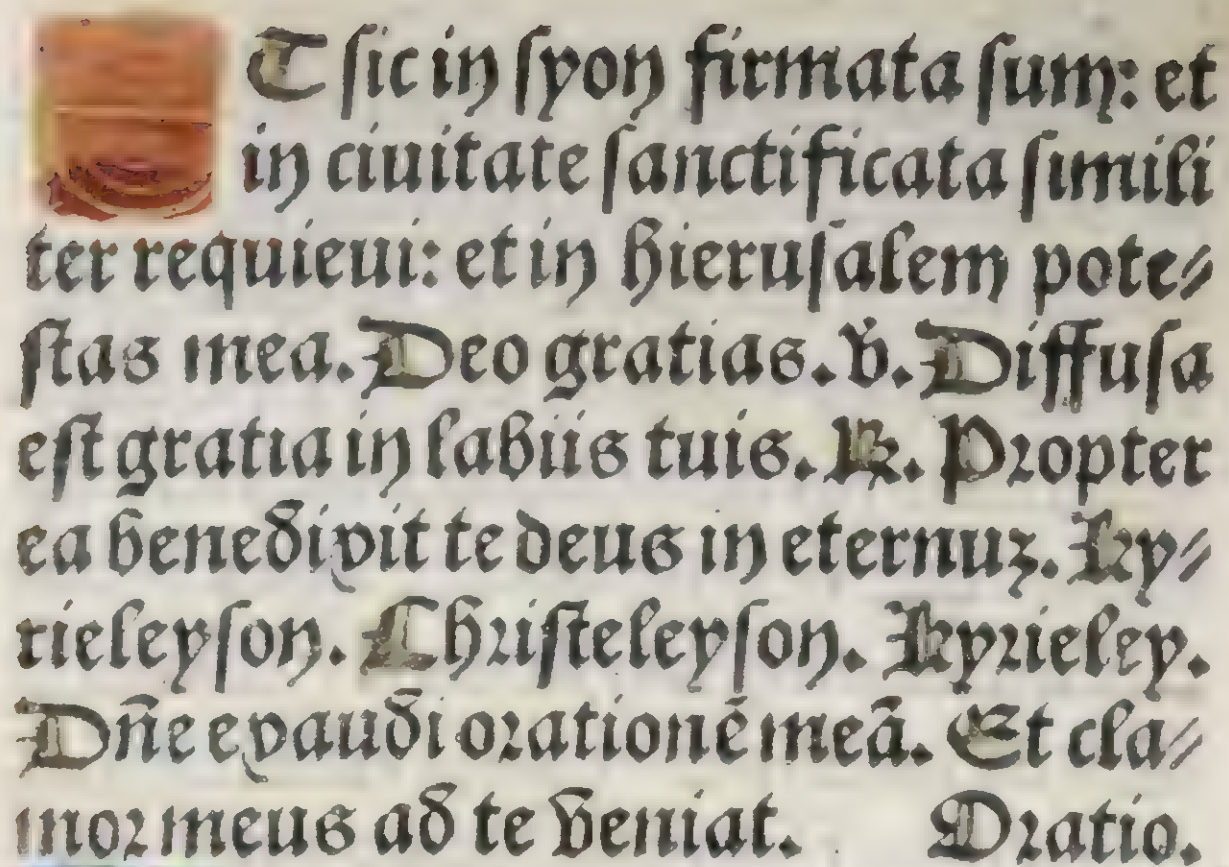 ET ſic in ſyon firmata ſum: et
in ciuitate ſanctificata ſimili
ter requieui: et in hieruſalem pote⸗
ſtas mea. Deo gratias. ℣. Diffuſa
eſt gratia in labiis tuis. ℟. Propter
ea benedixit te deus in eternuz. Ky⸗
rieleyſon. Chriſteleyſon. Kyrieley.
Dñe exaudi orationē meā. Et cla⸗
mor meus ad te veniat. Oratio.